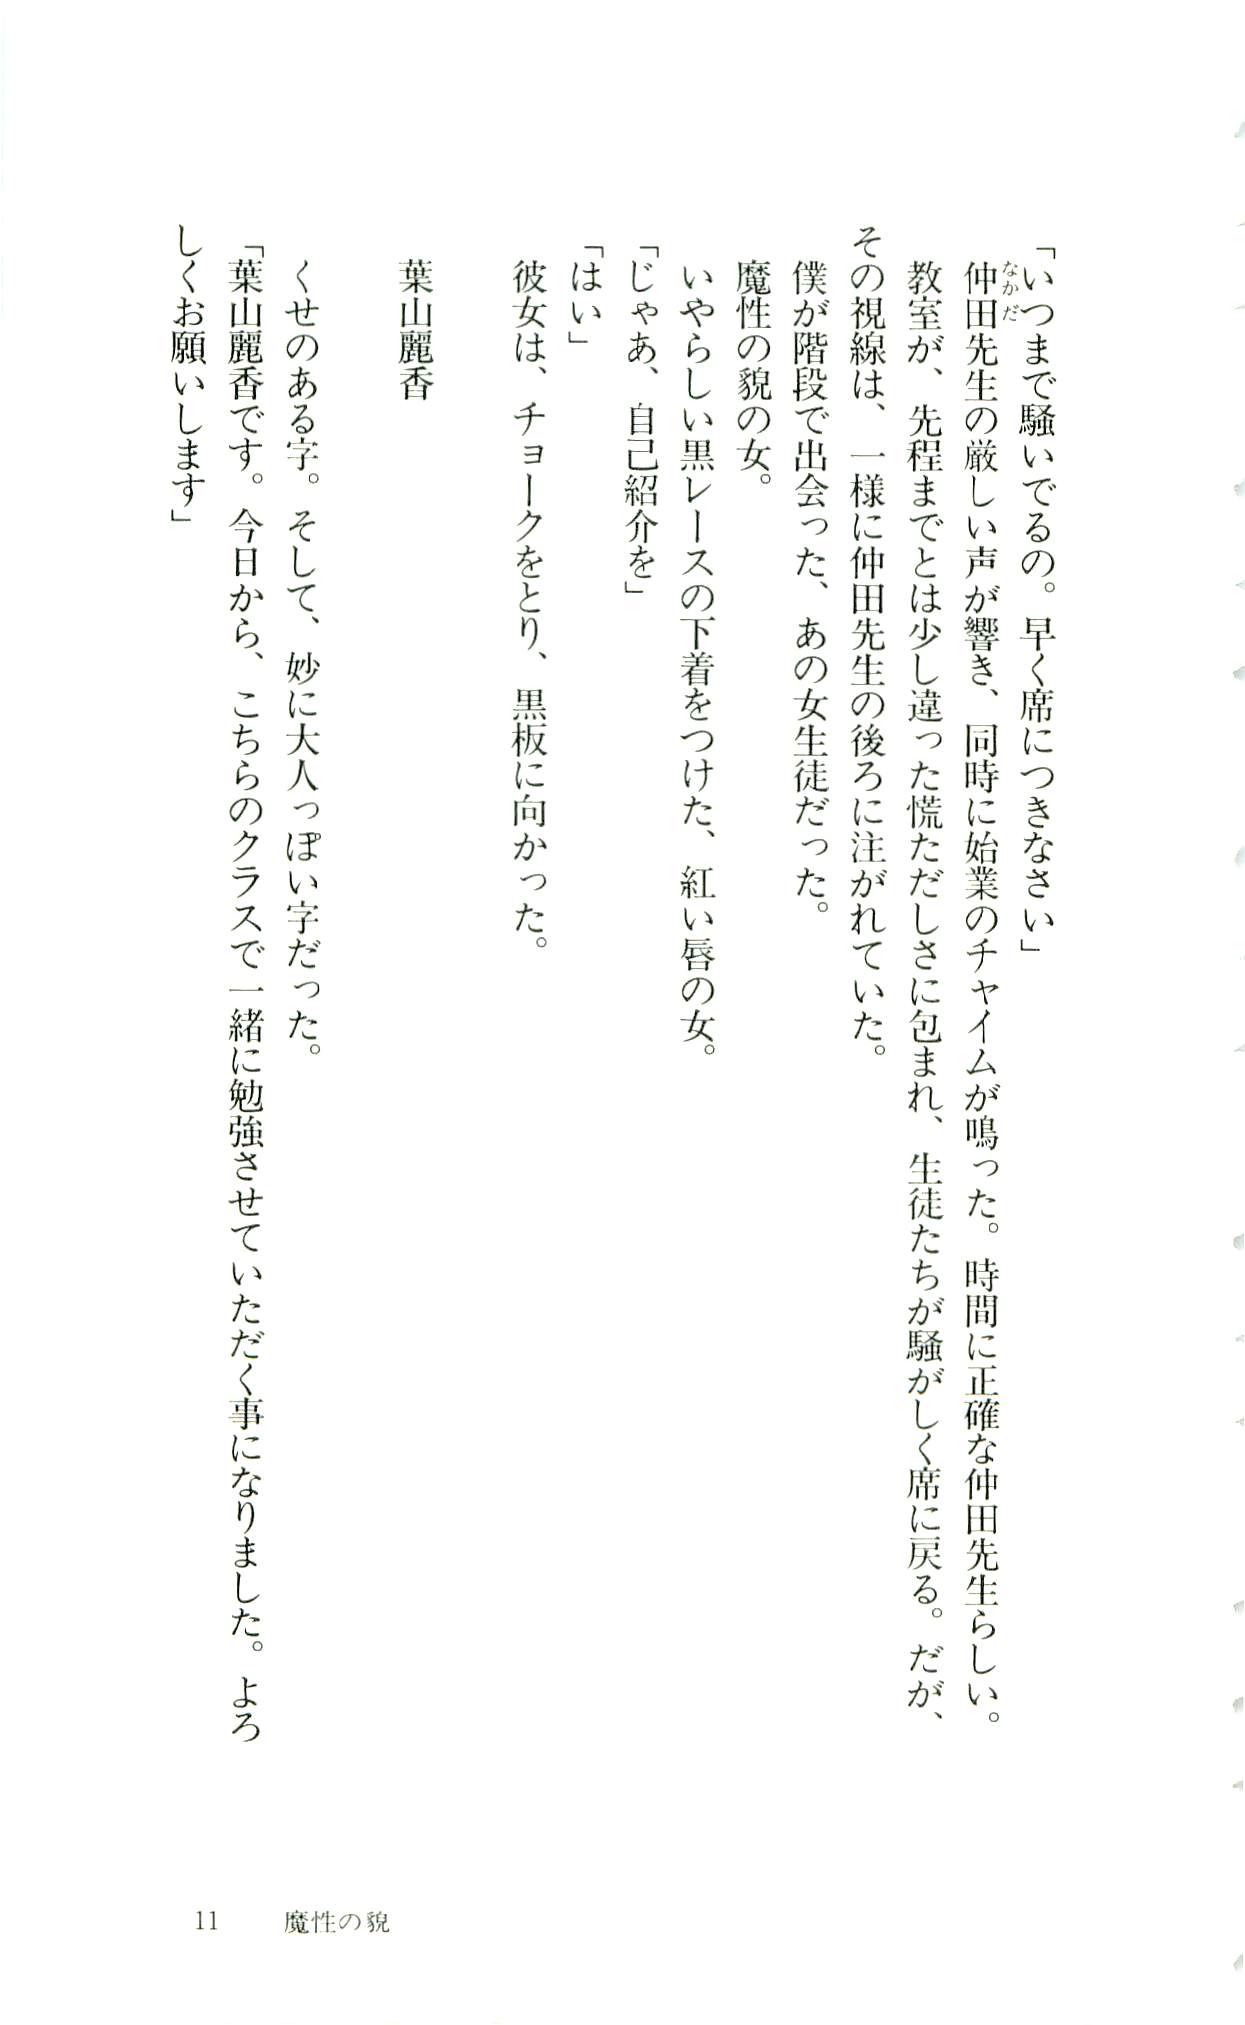 「いつまで騒いでるの。早く席につきなさい」
仲田先生の厳しい声が響き、同時に始業のチャイムが鳴った。時間に正確な仲田先生らしい。
なかだ
教室が、先程までとは少し違った慌ただしさに包まれ、生徒たちが騒がしく席に戻る。だが、
その視線は、一様に仲田先生の後ろに注がれていた。
僕が階段で出会った、あの女生徒だった。
魔性の貌の女。
いやらしい黒レースの下着をつけた、紅い唇の女。
「じゃあ、自己紹介を」
「はい」
彼女は、チョークをとり、黒板に向かった。
葉山麗香
くせのある字。そして、妙に大人っぽい字だった。
「葉山麗香です。今日から、こちらのクラスで一緒に勉強させていただく事になりました。よろ
しくお願いします」
11 魔性の貌